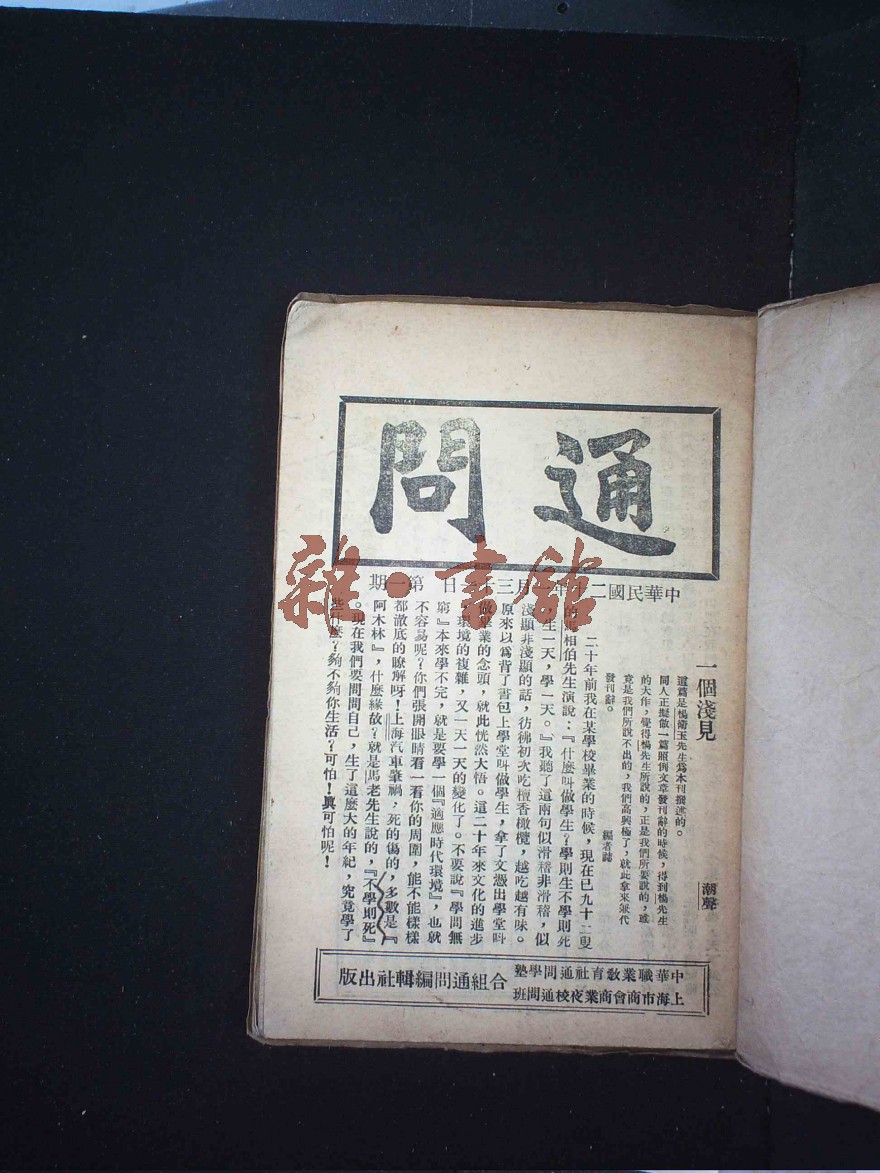 通問
中華民國二十 月三十 日 第一期
一個淺見
潮聲
這篇是楊衛玉先生爲本刊撰述的。
同人正擬做一篇照例文章發刊辭的時候,得到楊先生
的大作,覺得楊先生所說的,正是我們所要說的,或
竟是我們所說不出的,我們高興極了,就此拿來兼代
發刊辭。 編者誌
二十年前我在某學校畢業的時候,現在已九十二叟
的馬相伯先生演說:『什麼叫做學生?學則生不學則死
生一天,學一天。』我聽了這兩句似滑稽非滑稽,似
淺顯非淺顯的話,彷彿初次吃檀香橄欖,越吃越有味。
原來以爲背了書包上學堂叫做學生,拿了文憑出學堂叫
做畢業的念頭,就此恍然大悟。這二十年來文化的進步
,環境的複雜,又一天一天的變化了。不要說『學問無
窮』本來學不完,就是要學一個『適應時代環境』,也就
不容易呢?你們張開眼睛看一看你的周圍,能不能樣樣
都澈底的瞭解呀!上海汽車肇禍,死的傷的,多數是『
阿木林』,什麼緣故?就是馬老先生說的,『不學則死』
。現在我們要問問自己,生了這麼大的年紀,究竟學了
些什麼?夠不夠你生活?可怕!眞可怕呢!
中華職業教育社通問學塾
上海市商會商業夜校通問班
合組通問編輯社出版
雜·書館